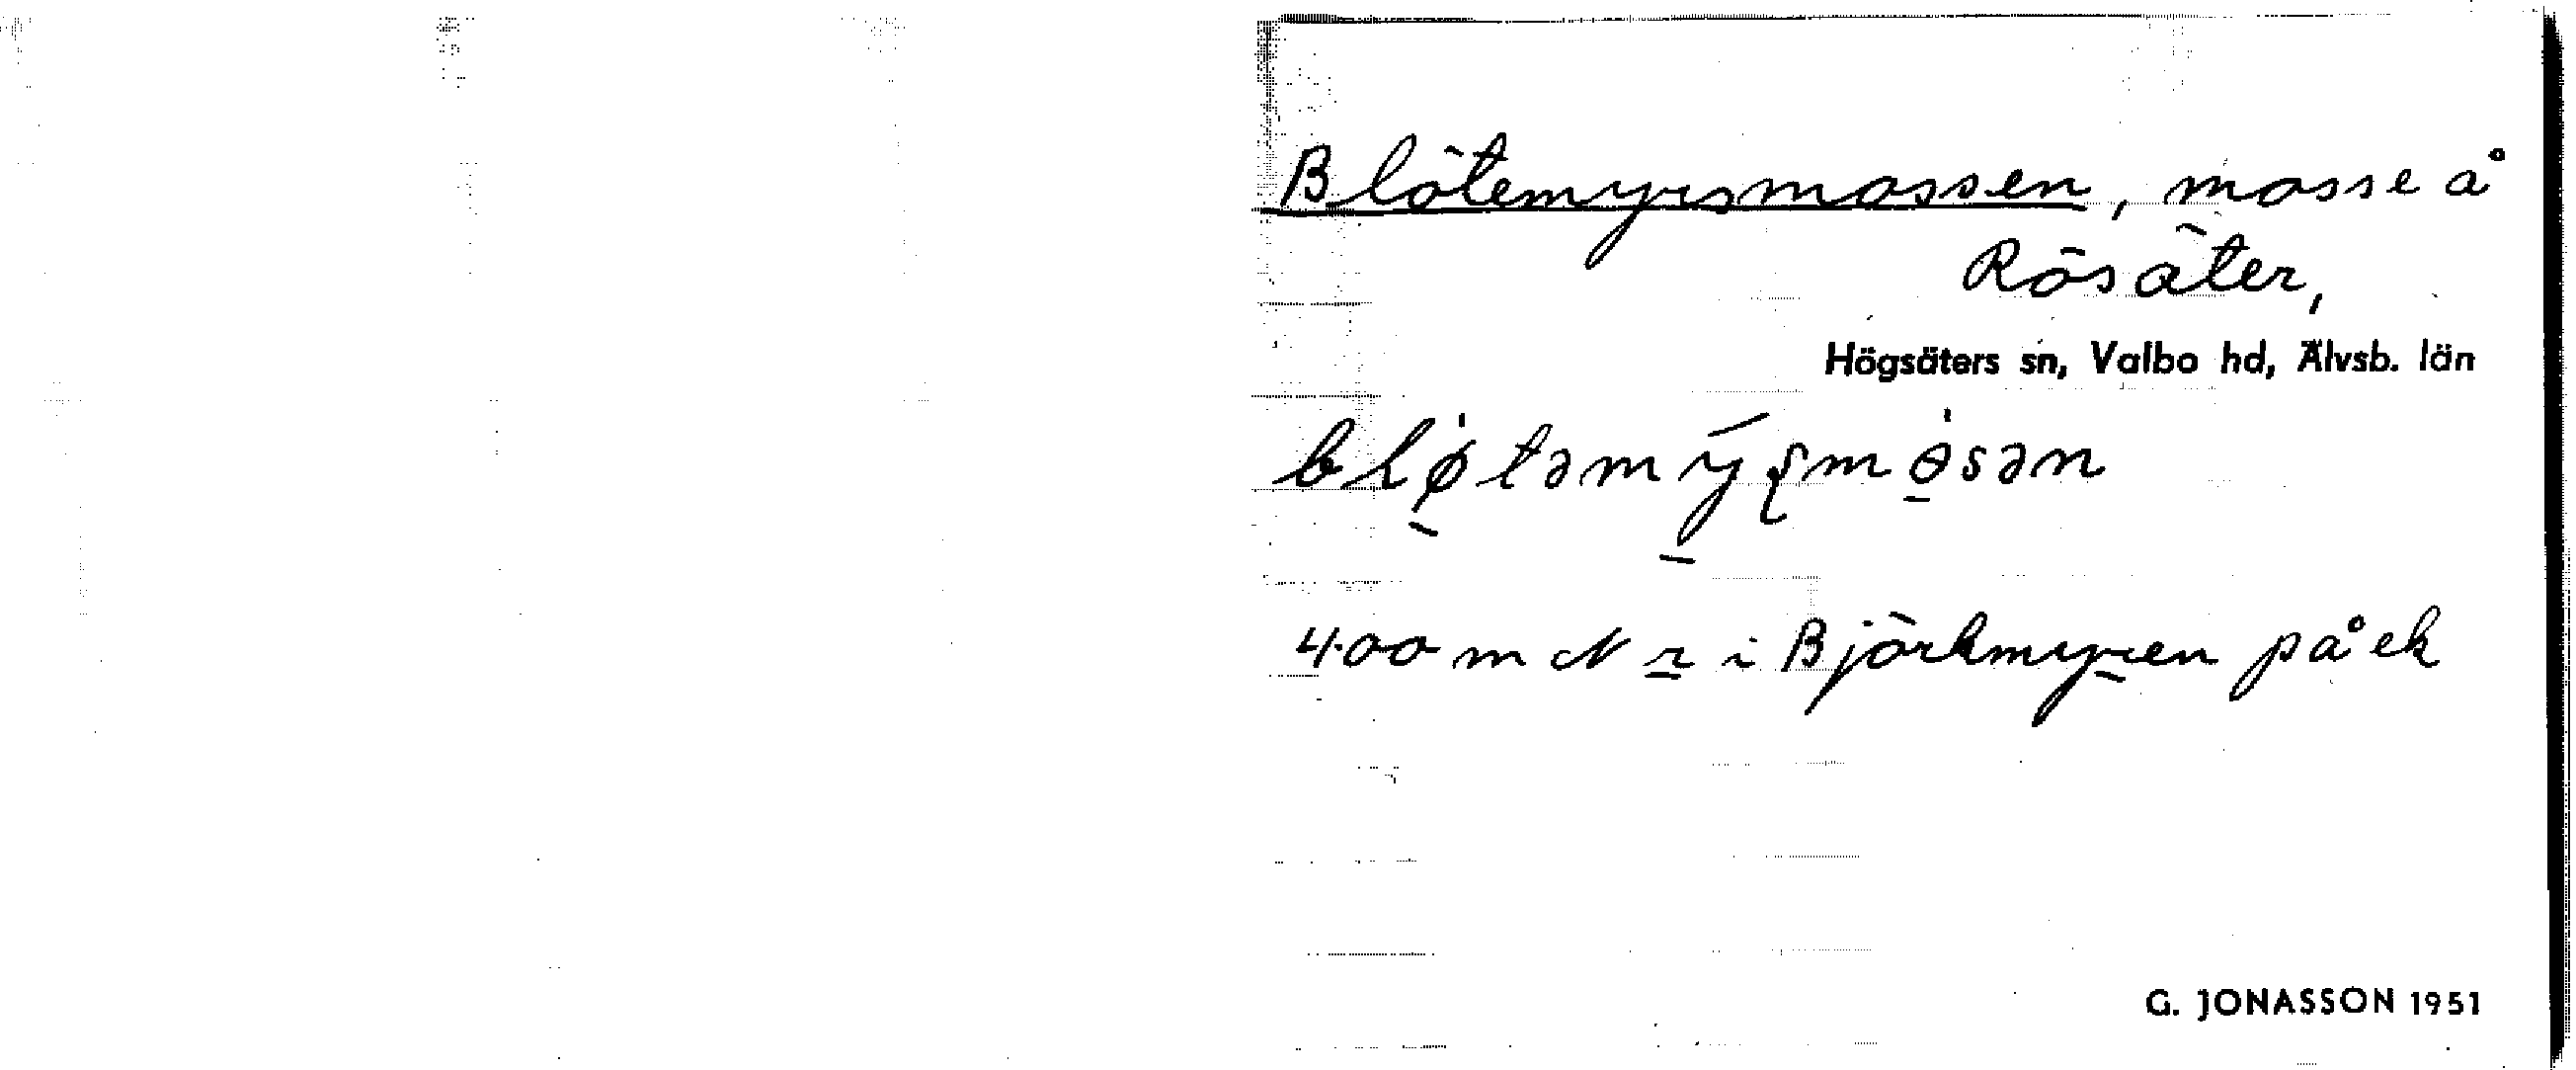 Blötemyrsmossen, mosse å
Rösäter,
Högsäters sn, Valbo hd, Älvsb. län
400 m N r i Björkmyren på ek
G. JONASSON 1951